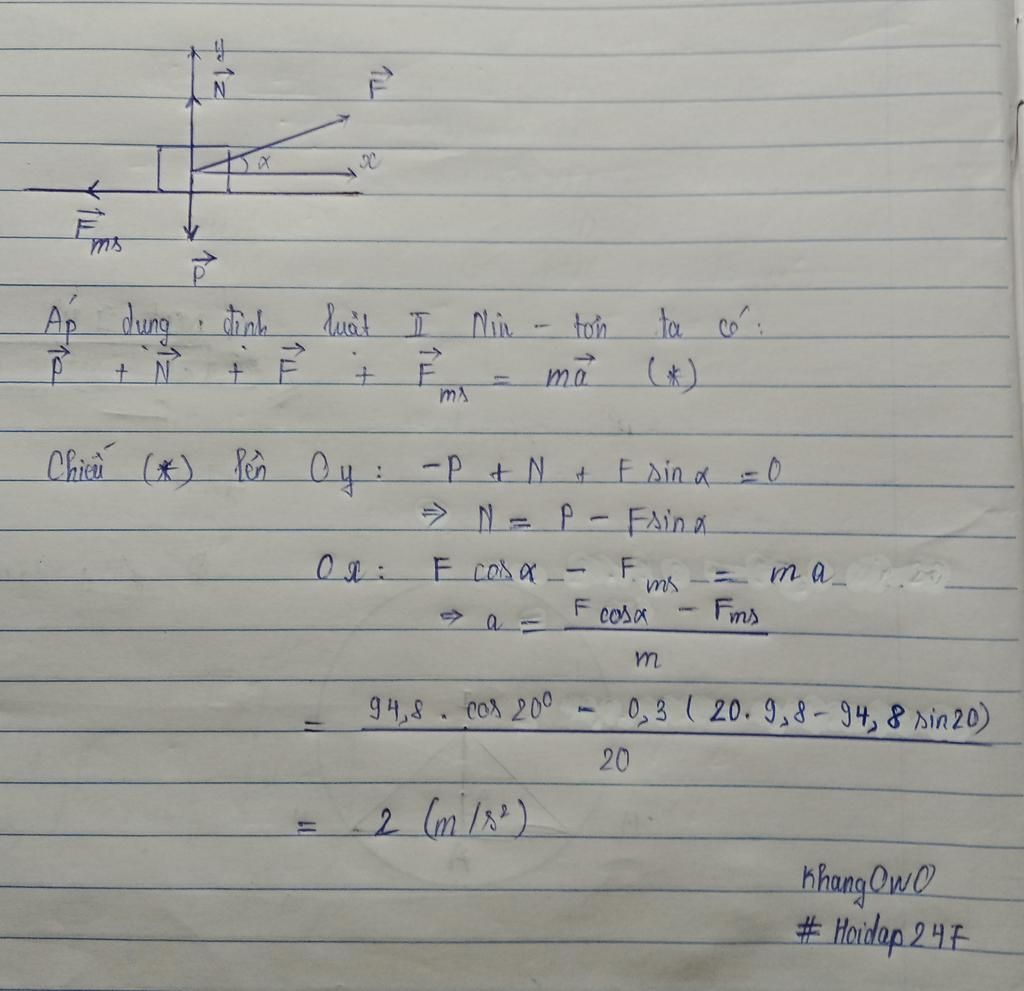 y
N⃗
F⃗
α
x
F⃗ms
P⃗
Áp dụng định luật II Niu-tơn ta có:
P⃗ + N⃗ + F⃗ + F⃗ms = ma⃗ (*)
Chiếu (*) lên Oy: -P + N + F sin α = 0
⇒ N = P - Fsin α
Ox: F cos α - Fms = ma
⇒ a = (F cos α - Fms) / m
= (94,8 . cos 20⁰ - 0,3 (20. 9,8 - 94,8 sin20)) / 20
= 2 (m/s²)
KhangOwO
# Hoidap247